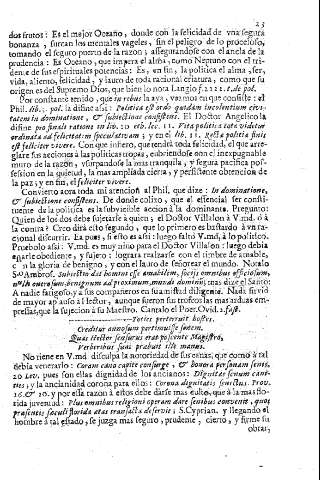 23
dos frutos: Es el major Oceano, donde con la felicidad de vna segura
bonanza, surcan los mentales vageles, sin el peligro de lo proceloso,
tomando el seguro puerto de la razon; assegurandose con el ancla de la
prudencia: Es Oceano, que impera el alma, como Neptuno con el tri-
dente de sus espirituales potencias: Es, en fin, la politica el alma, ser,
vida, aliento, felicidad, y lauro de toda racional criatura, como que su
origen es del Supremo Dios, que bien lo nota Langio f. 2221. de pol.
Por constante tenido, que in rebus la aya, veamos en que consiste: el
Phil. lib. 3. pol. la difine assi: Politica est ordo quidam incolentium civi-
tatem in dominatione, & subiectione consistens. El Doctor Angelico la
difine
ordinata ad felicitatem speculativam; y en el lib. 11. Recta politia finis
est feliciter vivere. Con que infiero, que tendrá toda felicidad, el que arre-
glare sus acciones à las politicas tropas, exhibiendose con el inexpugnable
muro de la razon, vsurpandose la mas tranquila, y segura pacifica pos-
session en la quietud, la mas ampliada cierra, y persistente obtencion de
la paz; y en fin, el feliciter vivere.
Convierto aora toda mi atencion al Phil, que dize: In dominatione,
& subiectione consistens. De donde colijo, que el essencial ser consti-
tuente de la politica es la subyicible accion à la dominante. Pregunto:
Quien de los dos debe sujetarse à quien; el Doctor Villalon à V.md. ó à
la contra? Creo dirà esto segundo, que lo primero es bastardo à vn ra-
cional discurrir. Ea pues, si esto es assi: luego faltó V.md. à lo politico.
Pruebolo assi: V.md. es muy niño para el Doctor Villalon: luego debia
estarle obediente, y sujeto: lograra realzarse con el timbre de amable,
con la gloria de benigno, y con el lauro de señorear el mundo. Notalo
S. Ambros. Subiectio dat homini esse amabilem, socijs omnibus officiosum,
in alterutrum benignum ad proximum, mundi dominum; mas dize el Santo:
A nadie fatigoso, y à sus compañeros en su amistad diligente. Nada sirvió
de mayor aplauso al lector, aunque fueron sus trofeos las mas arduas em-
presas, que la sujecion à su Maestro. Cantalo el Poet. Ovid. 2. fast.
Toties perterruit hostes,
Creditur annosum pertimuisse senem.
Quas Hector sensurus erat poscente Magistro,
Verberibus suis praebuit ille manus.
No tiene en V.md. disculpa la notoriedad de sus canas, que como à tal
debia venerarlo: Coram cano capite consurge, & honora personam senis,
20 Lev. pues son ellas dignidad de los ancianos: Dignitas senum cani-
ties; y la ancianidad corona para ellos: Corona dignitatis senectus. Prov.
16. & 20. y por essa razon à estos debe darse mas culto, que à la mas flo-
rida juventud: Plus omnibus religioni operam dare senibus convenit, quos
praesentis saeculi florida aetas transacta deservit; S. Cyprian. y llegando el
hombre à tal estado, se juzga mas seguro, prudente, cierto, y firme su
obrar,